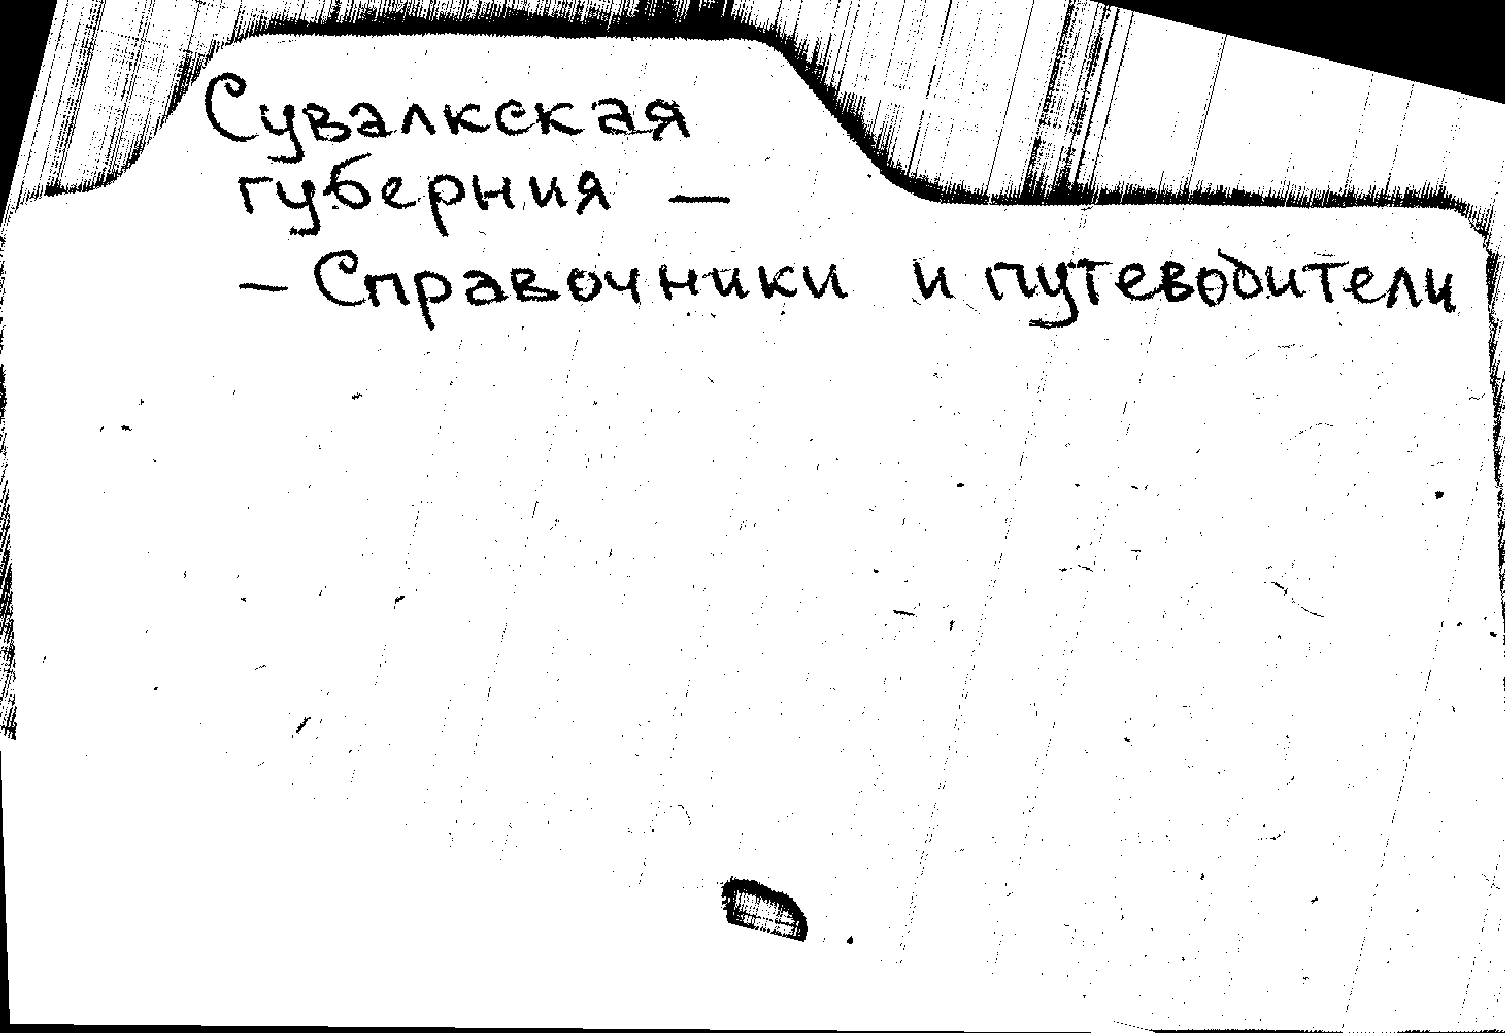 Сувалкская
губерния —
— Справочники и путеводители